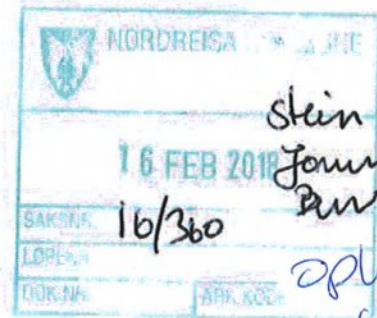 NORDREISA
stein
16 FEB 2018
SAKSNR. 16/360
LØPENR.
DOK.NR. ARK.KODE